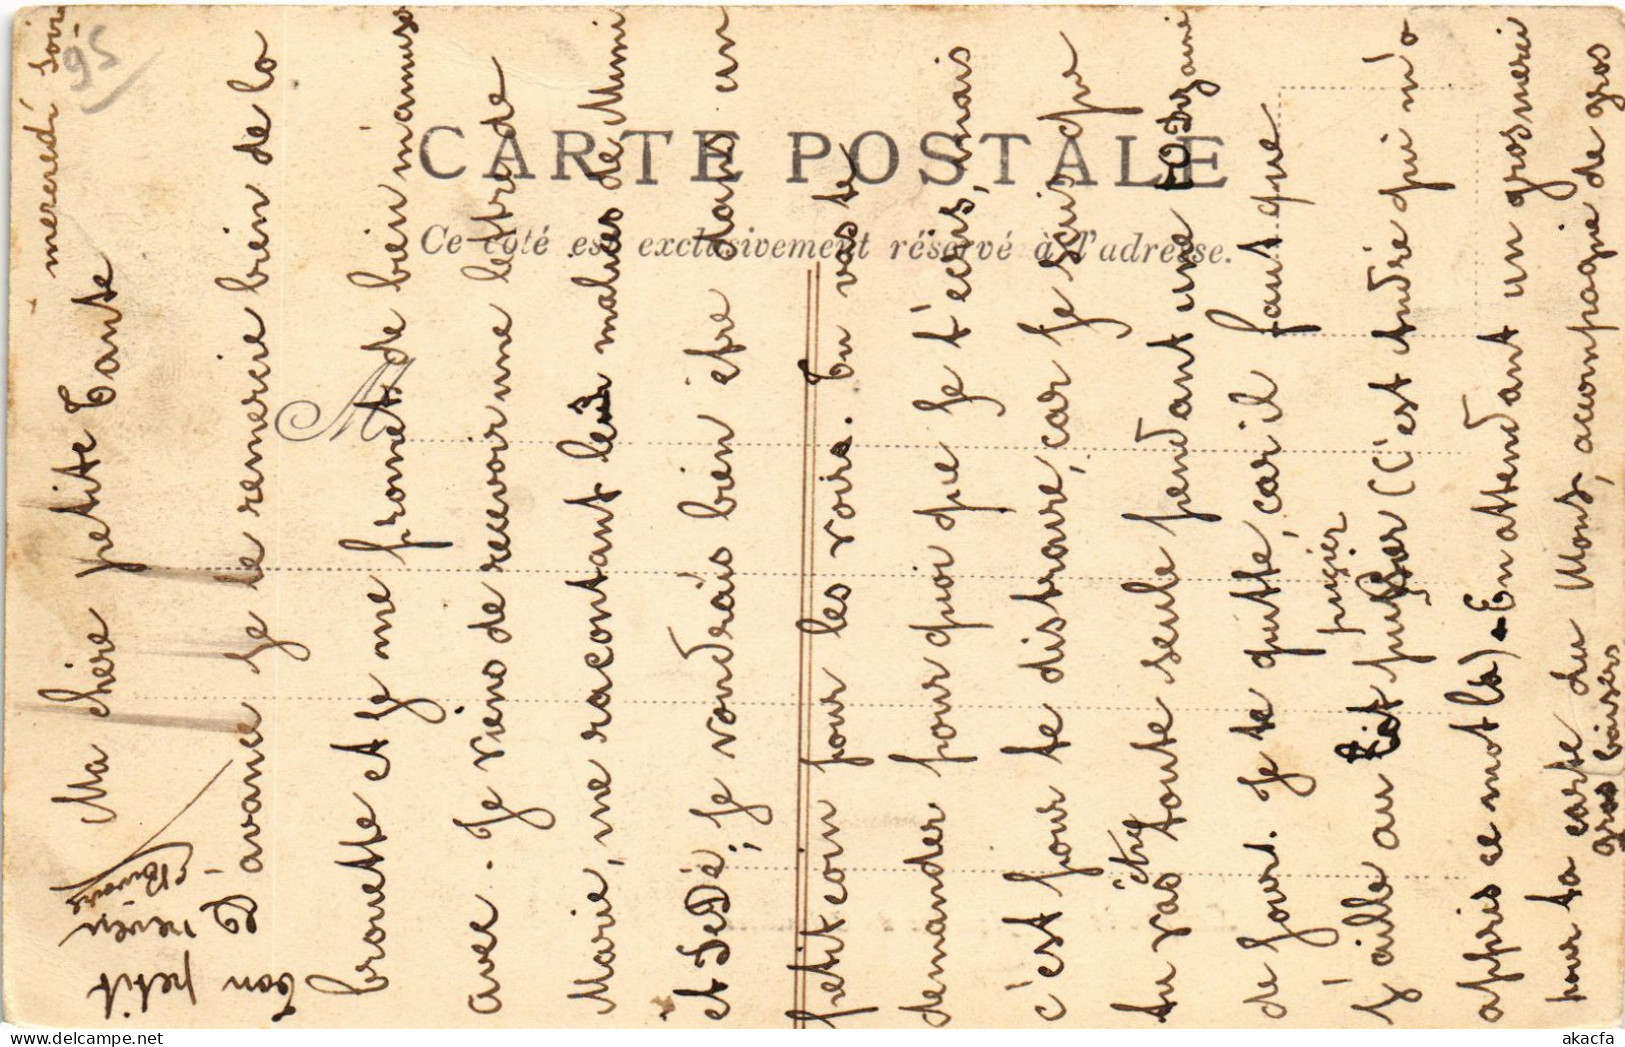 mercredi soir
95
Ma chère petite Tante
D'avance je te remercie bien de la
brouette et je me promet de bien m'amuser
avec. Je viens de recevoir une lettre de
Marie, me racontant les malices de Mimi
et DeDé ; je voudrais bien être dans un
petit coin pour les voirs. Tu vas te
demander pour quoi que je t'écris, mais
c'est pour te distraire, car je sais que
tu vas être toute seule pendant une dizaine
de jours. Je te quitte, car il faut que
j'aille au pugier (c'est André qui m'a
appris ce mot la). En attendant un gros merci
pour ta carte du Mons, accompagnie de gros
gros baisers
Ton petit
neveu
CARTE POSTALE
Ce côté est exclusivement réservé à l'adresse.
M
akacfa
delcampe.net